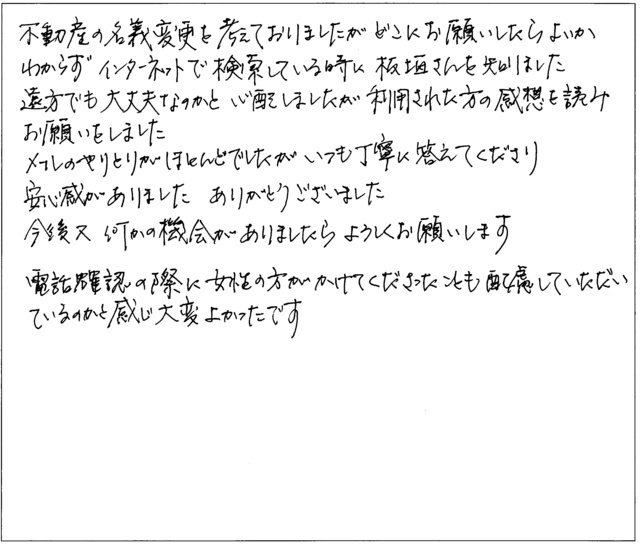 不動産の名義変更を考えておりましたがどこにお願いしたらよいか
わからず インターネットで検索している時に板垣さんを知りました
遠方でも大丈夫なのかと心配しましたが利用された方の感想を読み
お願いをしました
メールのやりとりがほとんどでしたが いつも丁寧に答えてくださり
安心感がありました ありがとうございました
今後又 何かの機会がありましたらよろしくお願いします
電話確認の際に女性の方がかけてくださったことも配慮していただい
ているのかと感じ大変よかったです